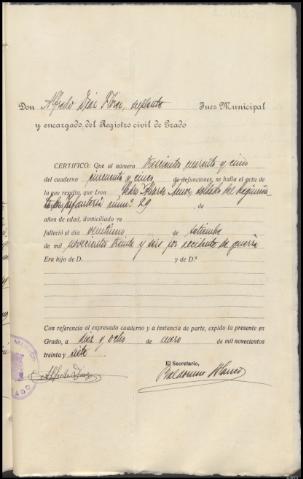 Don Alfredo Díaz Juez Municipal
y encargado del Registro civil de Grado
CERTIFICO: Que al número
del cuaderno cincuenta y cinco de defunciones, se halla el acta de
la que resulta, que Don soldado del Regimien
to de Infantería núm. 29 de
años de edad, domiciliado en
falleció el día veintiuno de setiembre
de mil novecientos treinta y seis por accidente de guerra
Era hijo de D. y de D.ª
Con referencia al expresado cuaderno y a instancia de parte, expido la presente en
Grado, a diez y ocho de enero de mil novecientos
treinta y siete.
El Secretario,
Alfredo Díaz
Blanco